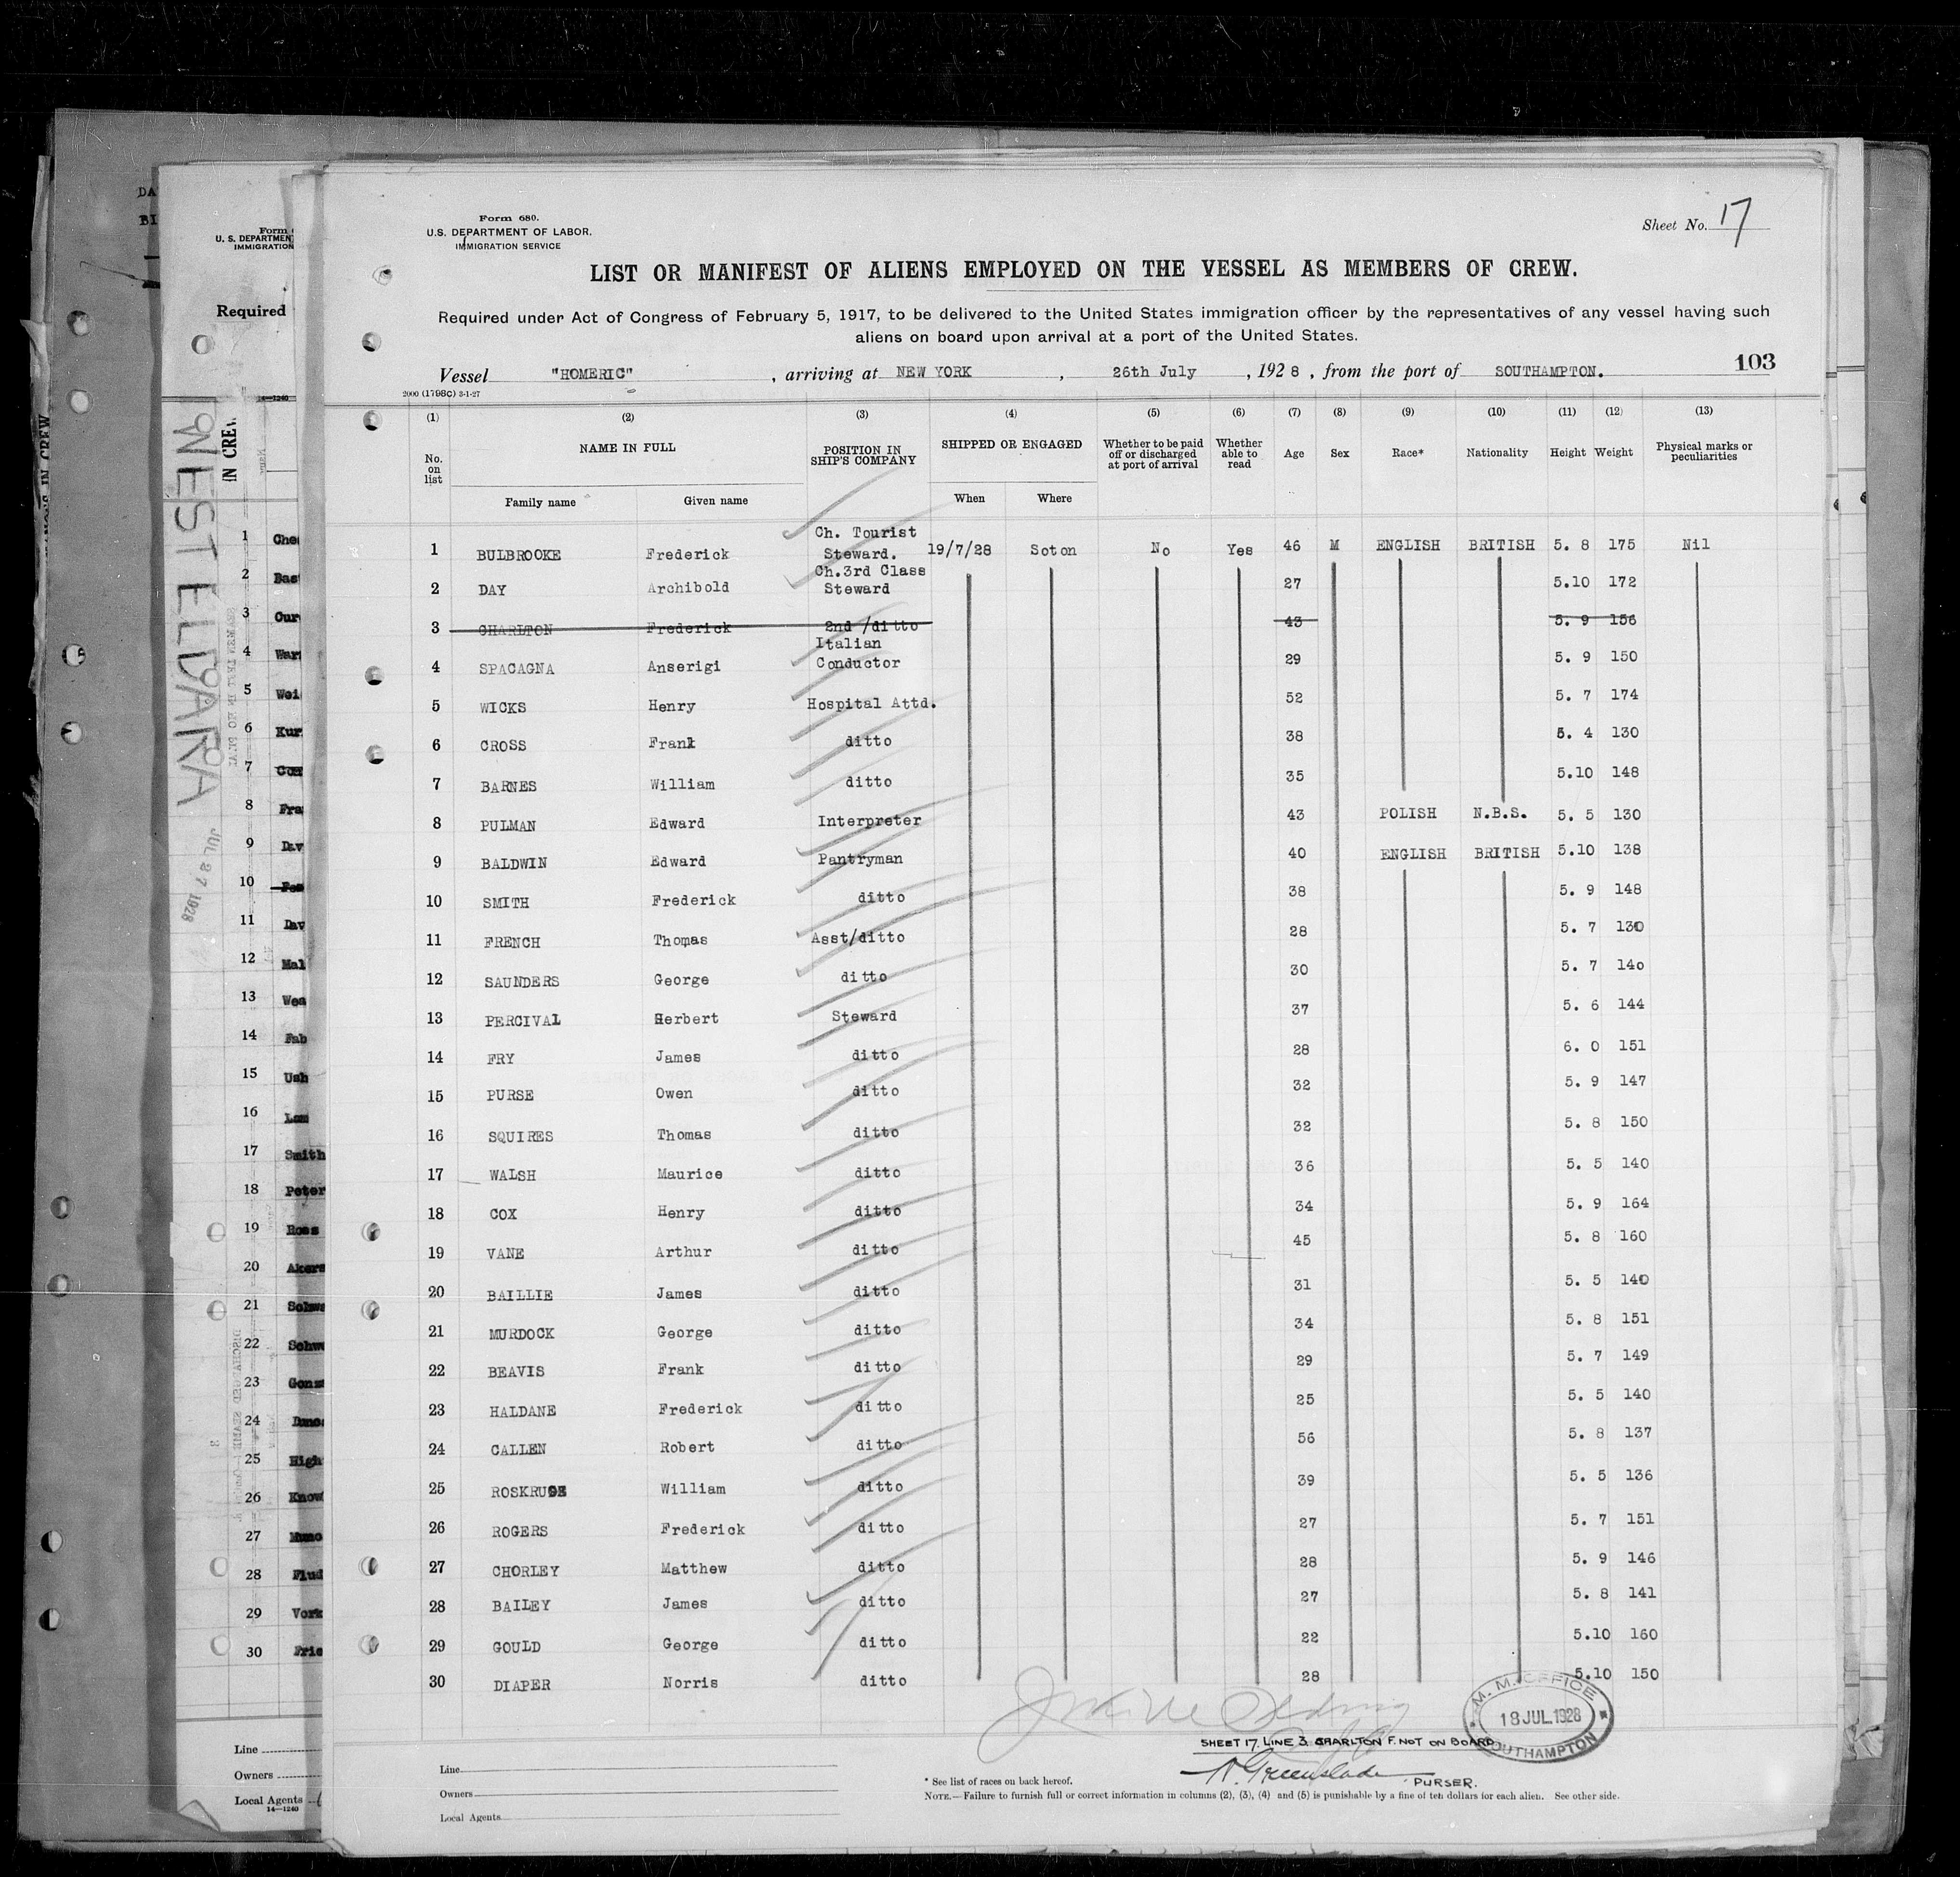 Form 680.
U.S. DEPARTMENT OF LABOR.
IMMIGRATION SERVICE
Sheet No. 17
LIST OR MANIFEST OF ALIENS EMPLOYED ON THE VESSEL AS MEMBERS OF CREW.
Required under Act of Congress of February 5, 1917, to be delivered to the United States immigration officer by the representatives of any vessel having such
aliens on board upon arrival at a port of the United States.
103
Vessel "HOMERIC", arriving at NEW YORK, 26th July, 1928, from the port of SOUTHAMPTON.
2000 (1798C) 3-1-27
(1) (2) (3) (4) (5) (6) (7) (8) (9) (10) (11) (12) (13)
No. on list NAME IN FULL POSITION IN SHIP'S COMPANY SHIPPED OR ENGAGED Whether to be paid off or discharged at port of arrival Whether able to read Age Sex Race* Nationality Height Weight Physical marks or peculiarities
Family name Given name When Where
1 BULBROOKE Frederick Ch. Tourist Steward. 19/7/28 Soton No Yes 46 M ENGLISH BRITISH 5. 8 175 Nil
2 DAY Archibold Ch.3rd Class Steward 27 5.10 172
3 CHARLTON Frederick 2nd /ditto 43 5. 9 156
4 SPACAGNA Anserigi Italian Conductor 29 5. 9 150
5 WICKS Henry Hospital Attd. 52 5. 7 174
6 CROSS Frank ditto 38 5. 4 130
7 BARNES William ditto 35 5.10 148
8 PULMAN Edward Interpreter 43 POLISH N.B.S. 5. 5 130
9 BALDWIN Edward Pantryman 40 ENGLISH BRITISH 5.10 138
10 SMITH Frederick ditto 38 5. 9 148
11 FRENCH Thomas Asst/ditto 28 5. 7 130
12 SAUNDERS George ditto 30 5. 7 140
13 PERCIVAL Herbert Steward 37 5. 6 144
14 FRY James ditto 28 6. 0 151
15 PURSE Owen ditto 32 5. 9 147
16 SQUIRES Thomas ditto 32 5. 8 150
17 WALSH Maurice ditto 36 5. 5 140
18 COX Henry ditto 34 5. 9 164
19 VANE Arthur ditto 45 5. 8 160
20 BAILLIE James ditto 31 5. 5 140
21 MURDOCK George ditto 34 5. 8 151
22 BEAVIS Frank ditto 29 5. 7 149
23 HALDANE Frederick ditto 25 5. 5 140
24 CALLEN Robert ditto 56 5. 8 137
25 ROSKRUGE William ditto 39 5. 5 136
26 ROGERS Frederick ditto 27 5. 7 151
27 CHORLEY Matthew ditto 28 5. 9 146
28 BAILEY James ditto 27 5. 8 141
29 GOULD George ditto 22 5.10 160
30 DIAPER Norris ditto 28 5.10 150
M. M. OFFICE
18 JUL. 1928
SOUTHAMPTON
SHEET 17. LINE 3. CHARLTON F. NOT ON BOARD
Greenslade PURSER.
Line
Owners
Local Agents
* See list of races on back hereof.
NOTE.—Failure to furnish full or correct information in columns (2), (3), (4) and (5) is punishable by a fine of ten dollars for each alien. See other side.
U. S. DEPARTMEN
IMMIGRATION
Required
14—1240
WEST ELDARA
JUL 27 1928
IN CREW
1
2
3
4
5
6
7
8
9
10
11
12
13
14
15
16
17 Smith
18 Peter
19 Ross
20 Akers
21
22
23
24
25 High
26 Know
27
28
29 York
30
Line
Owners
Local Agents
14—1240